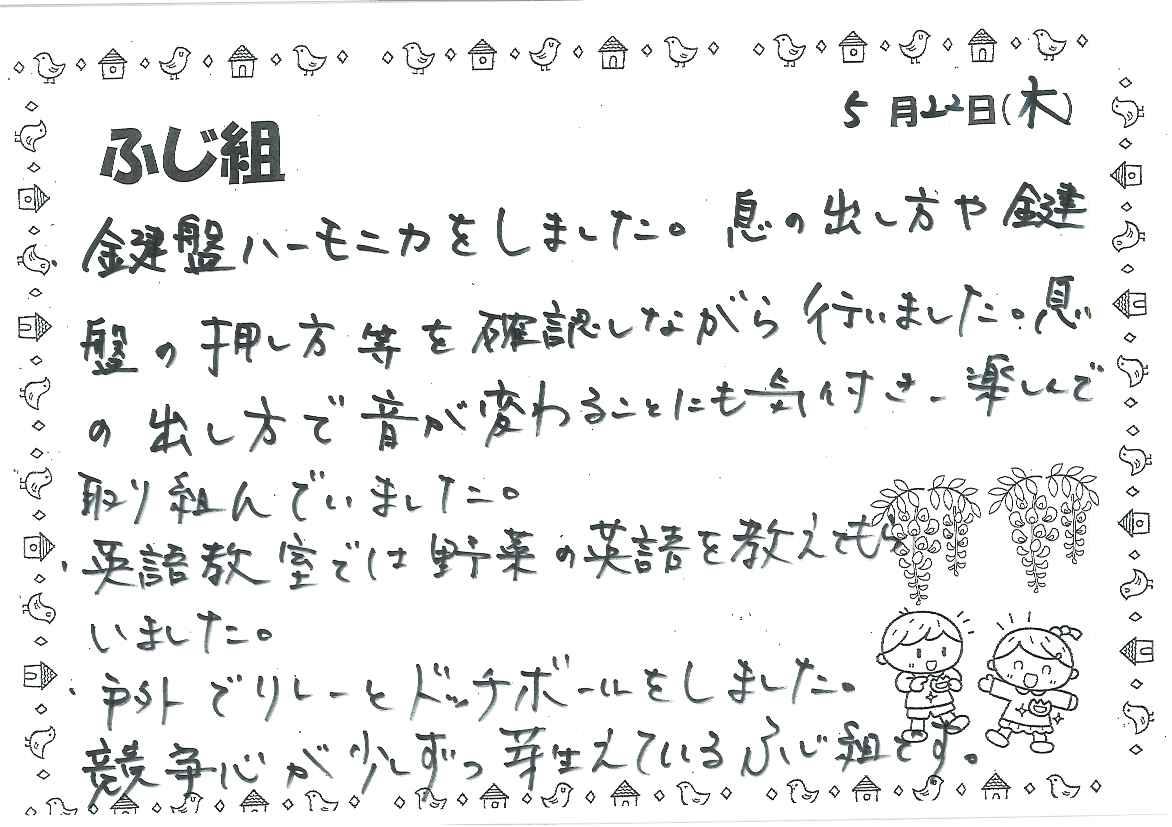 5月22日(木)
ふじ組
・鍵盤ハーモニカをしました。息の出し方や鍵
盤の押し方等を確認しながら行いました。息
の出し方で音が変わることにも気付き、楽しんで
取り組んでいました。
・英語教室では野菜の英語を教えてもら
いました。
・戸外でリレーとドッチボールをしました。
競争心が少しずつ芽生えているふじ組です。